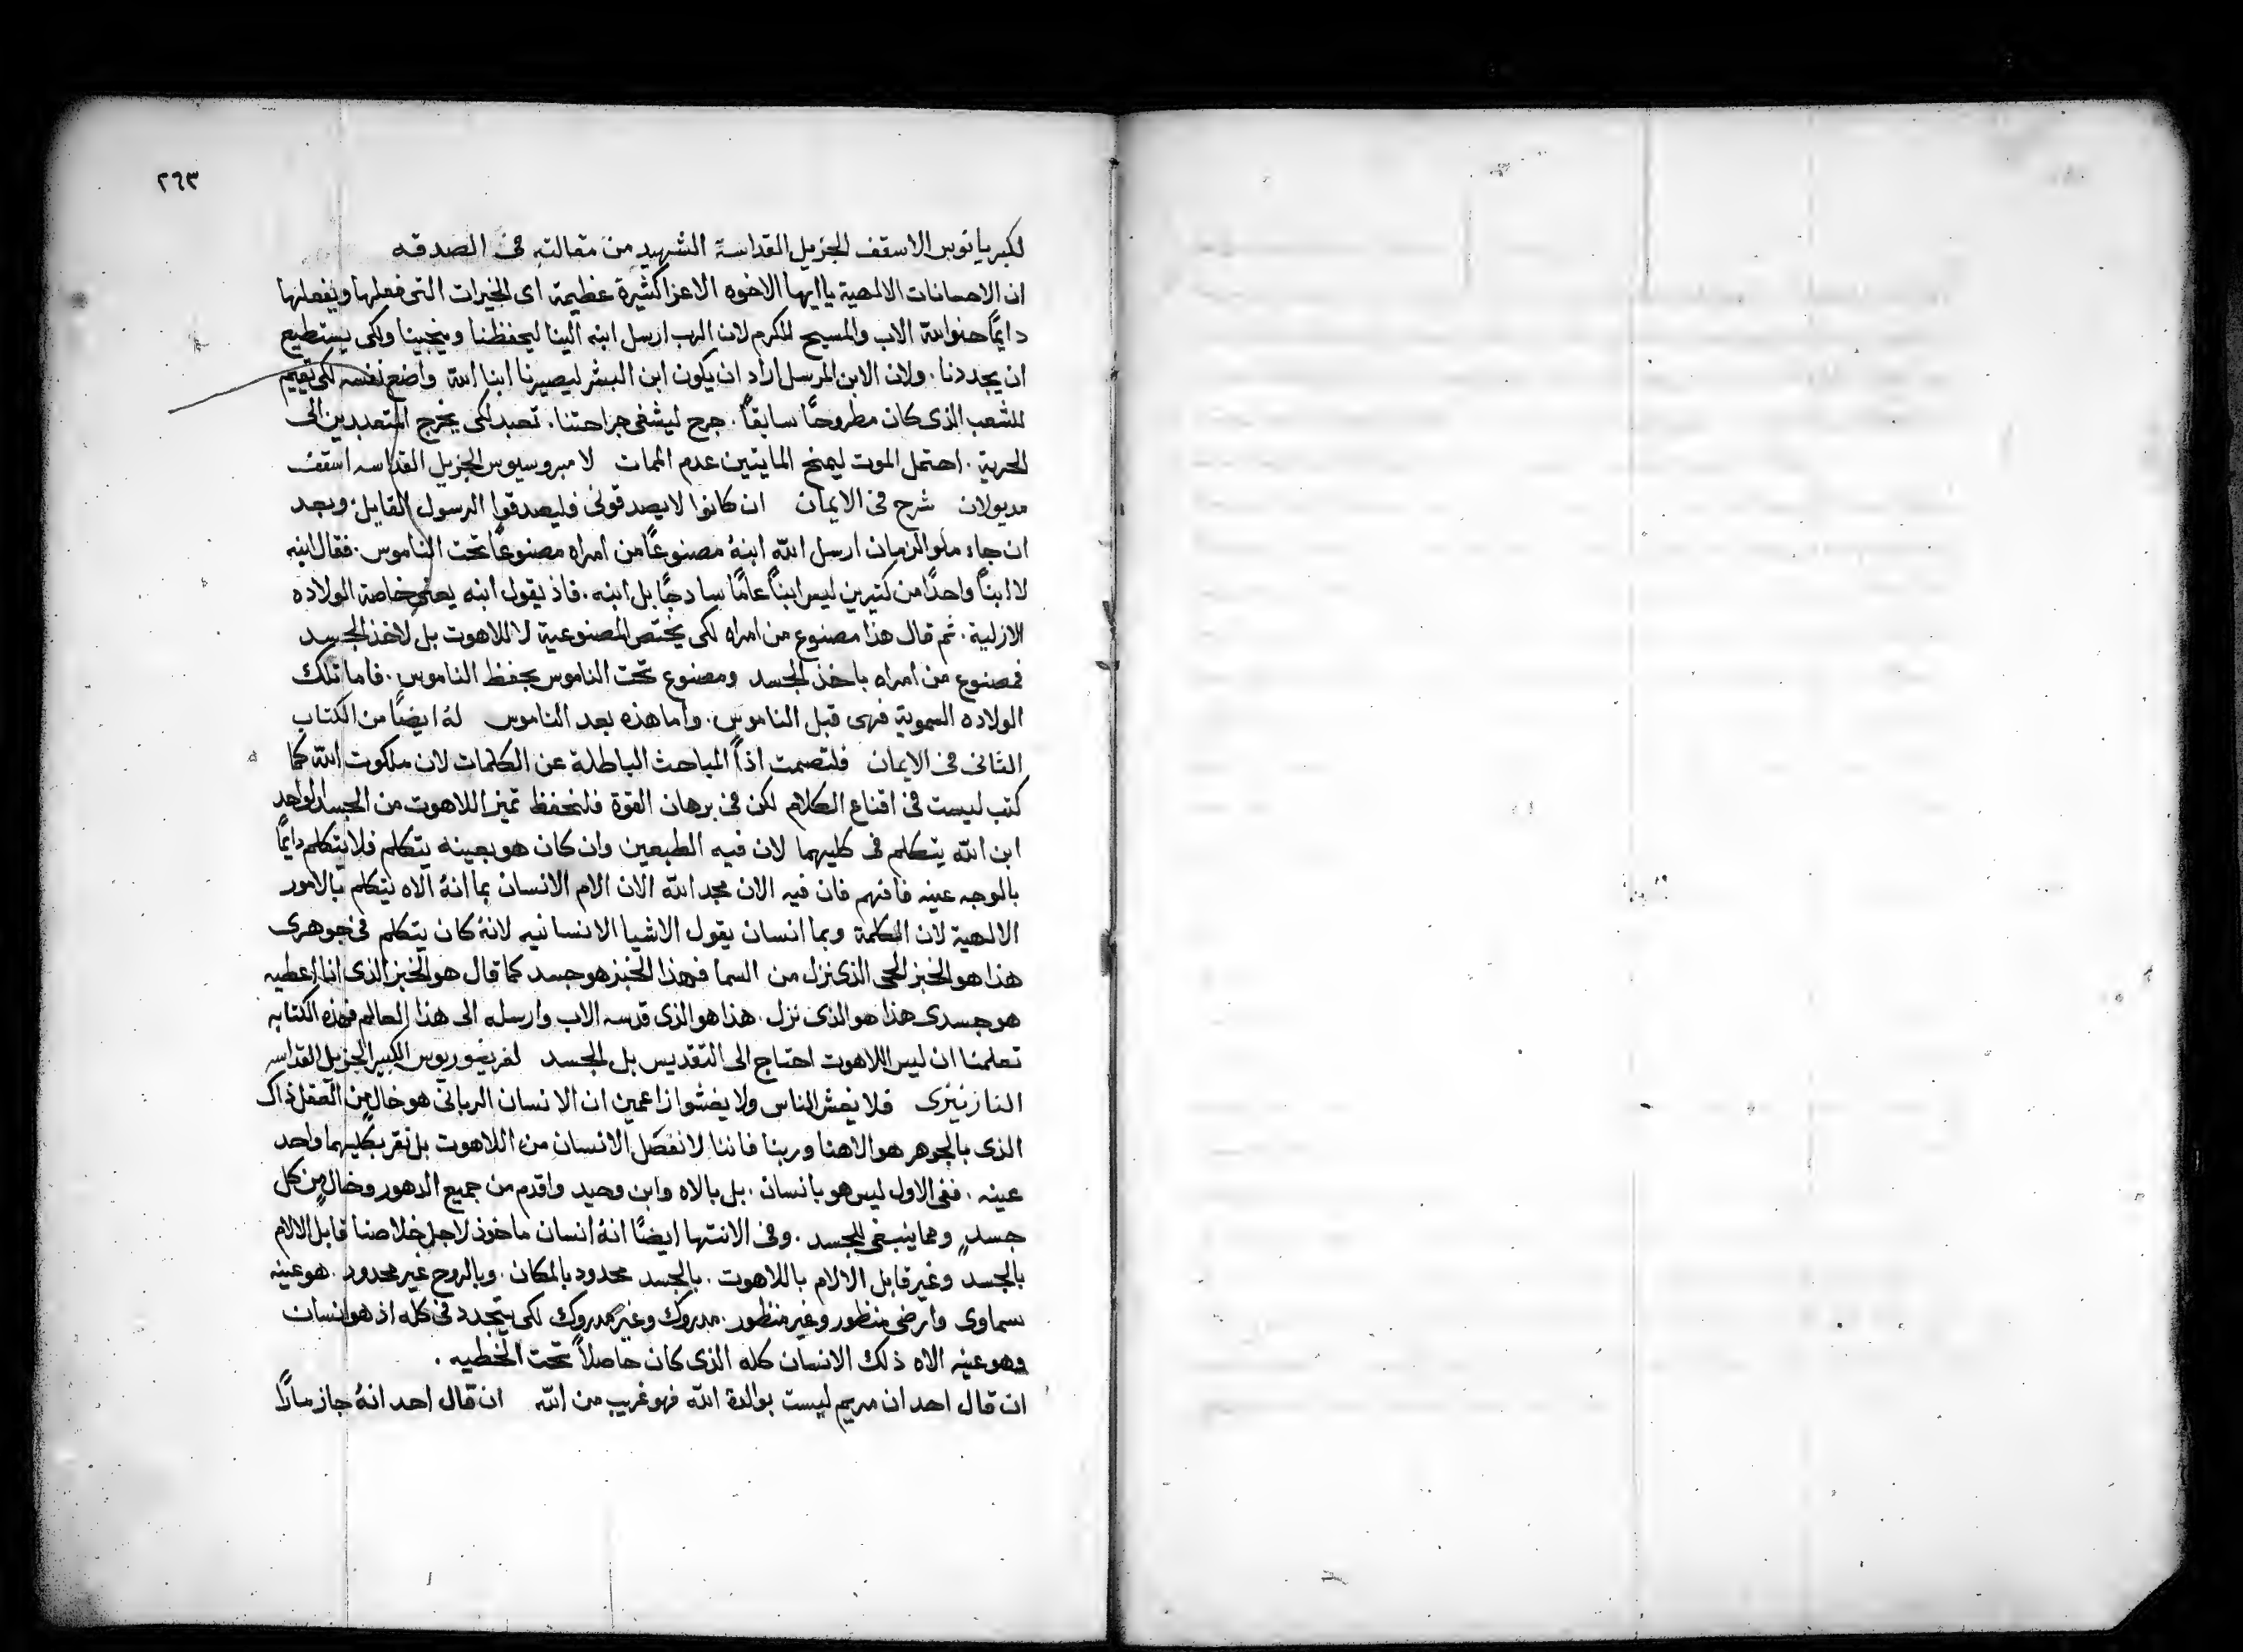 ٢٦٣
لكبريانوس الاسقف الجزيل القداسة الشهيد من مقالته في الصدقه
ان الاحسانات الالهية يا ايها الاخوه الاعزا كثيرة عظيمة اى الخيرات التى فعلها ويفعلها
دايمًا حنو الله الاب والمسيح المكرم لان الرب ارسل ابنه الينا ليحفظنا وينجينا ولكى يستطيع
ان يجددنا. ولان الابن المرسل اراد ان يكون ابن البشر ليصيرنا ابنا الله واضع نفسه لكى يقيم
للشعب الذى كان مطروحًا سابقًا. جرح ليشفى جراحتنا. تعبد لكى يخرج المتعبدين الى
الحرية. احتمل الموت ليمنح المايتين عدم الممات لامبروسيوس الجزيل القداسه اسقف
مديولان شرح في الايمان ان كانوا لا يصدقونى فليصدقوا الرسول القايل. وبعد
ان جاء ملو الزمان ارسل الله ابنهُ مصنوعًا من امراه مصنوعًا تحت الناموس. فقال ابنه
لا ابنًا واحدًا من كثيرين ليس ابنًا عامًا سادجًا بل ابنه. فاذ يقول ابنه يعنى خاصة الولاده
الازلية. ثم قال هذا مصنوع من امراه لكى يختص المصنوعية لا للاهوت بل لاخذ الجسد
فمصنوع من امراه باخذ الجسد ومصنوع تحت الناموس بحفظ الناموس. فاما تلك
الولاده السموية فهى قبل الناموس. واما هذه بعد الناموس لهُ ايضًا من الكتاب
الثانى في الايمان فلتصمت اذًا المباحث الباطلة عن الكلمات لان ملكوت الله كما
كتب ليست في اقناع الكلام لكن في برهان القوة فلنحفظ تميز اللاهوت من الجسد الواحد
ابن الله يتكلم في كليهما لان فيه الطبعين وان كان هو بعينه يتكلم فلا يتكلم دايمًا
بالوجه عينه فافهم فان فيه الان مجد الله الان الام الانسان بما انهُ الاه يتكلم بالامور
الالهية لان الكلمة وبما انسان يقول الاشيا الانسانيه لانهُ كان يتكلم في جوهرى
هذا هو الخبز الحى الذى نزل من السما فهذا الخبز هو جسد كما قال هو الخبز الذى انا اعطيه
هو جسدى هذا هو الذى نزل. هذا هو الذى قدسه الاب وارسله الى هذا العالم فهذه الكتابه
تعلمنا ان ليس اللاهوت احتاج الى التقديس بل الجسد لغريغوريوس الكبير الجزيل القداسه
النازينزى فلا يغش الناس ولا يغشوا زاعمين ان الانسان الربانى هو خالٍ من العقل ذاك
الذى بالجوهر هو الاهنا وربنا فاننا لا نفصل الانسان من اللاهوت بل نقر بكليهما واحد
عينه. ففى الاول ليس هو بانسان. بل بالاه وابن وحيد واقدم من جميع الدهور وخالٍ من كل
جسدٍ ومما ينبغى للجسد. وفى الانتها ايضًا انهُ انسان ماخوذ لاجل خلاصنا قابل الالام
بالجسد وغير قابل الالام باللاهوت. بالجسد محدود بالمكان. وبالروح غير محدود. هو عينه
سماوى وارضى منظور وغير منظور. مدروك وغير مدروك لكى يتجدد في كله اذ هو انسان
وهو عينه الاه ذلك الانسان كله الذى كان حاصلاً تحت الخطيه.
ان قال احد ان مريم ليست بوالدة الله فهو غريب من الله ان قال احد انهُ جاز مارًا